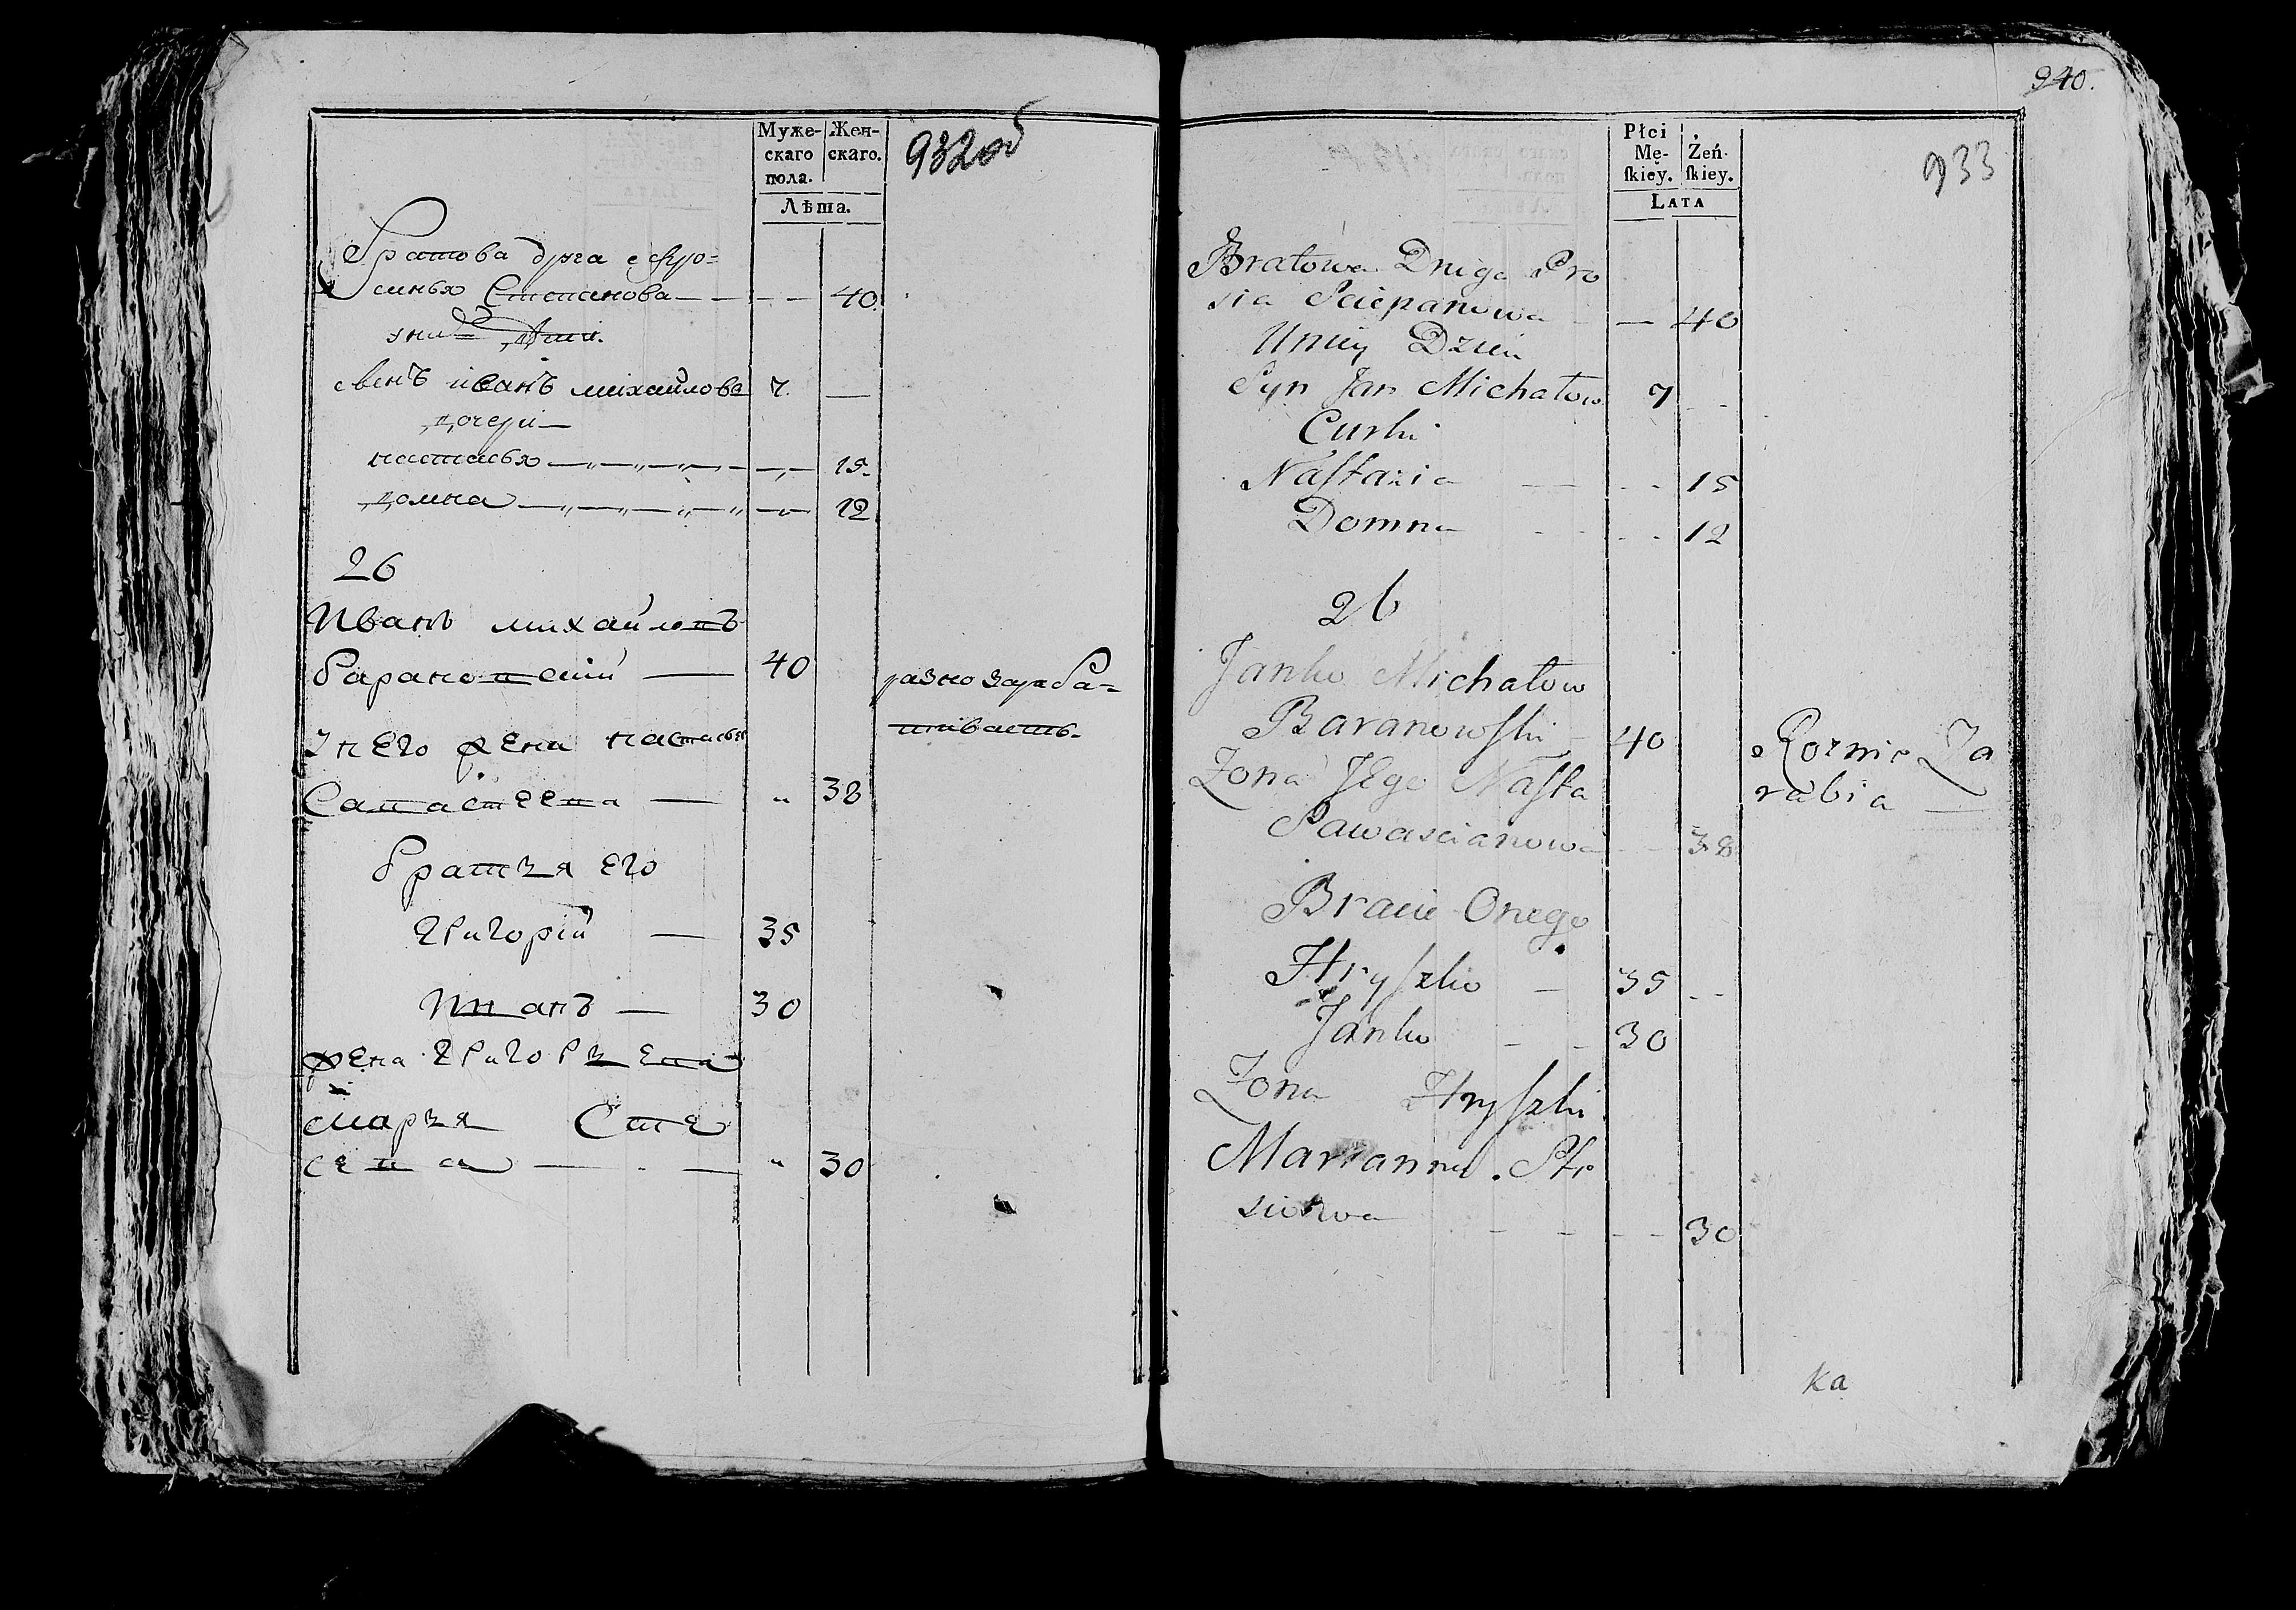 932об
Муже- Жен-
скаго скаго.
пола.
Лѣта.
Братова друга ефро=
синья Степанова — — — 40.
у ние Дѣти.
сынъ иванъ михайлова 7. —
дочери —
настасья — 15.
домна — 12
26
Иванъ михайловъ
барановскій — 40 разно зараба=
тиваетъ.
У него жена настасья
Савастеева — " 38
братья его
григорій — 35
Иванъ — 30
жена григорьева
марья Сте
сева — " 30
940.
933
Płci Żeń-
Mę- ſkiey.
ſkiey.
LATA
Bratowa Druga Pro
sia Sciepanowa — 40
Uniey Dzieci
Syn Jan Michałow 7 - -
Curki
Naſtazia — - - 15
Domna - - - - 12
26
Janko Michałow
Baranowſki — 40 Roznie Za
rabia —
Zona Jego Naſta
Sawascianowa - - 38
Bracie Onego
Hryſzko — 35 - -
Janko - - 30
Zona Hryſzki
Marianna . Ste
siowa - - - - - 30
Ka